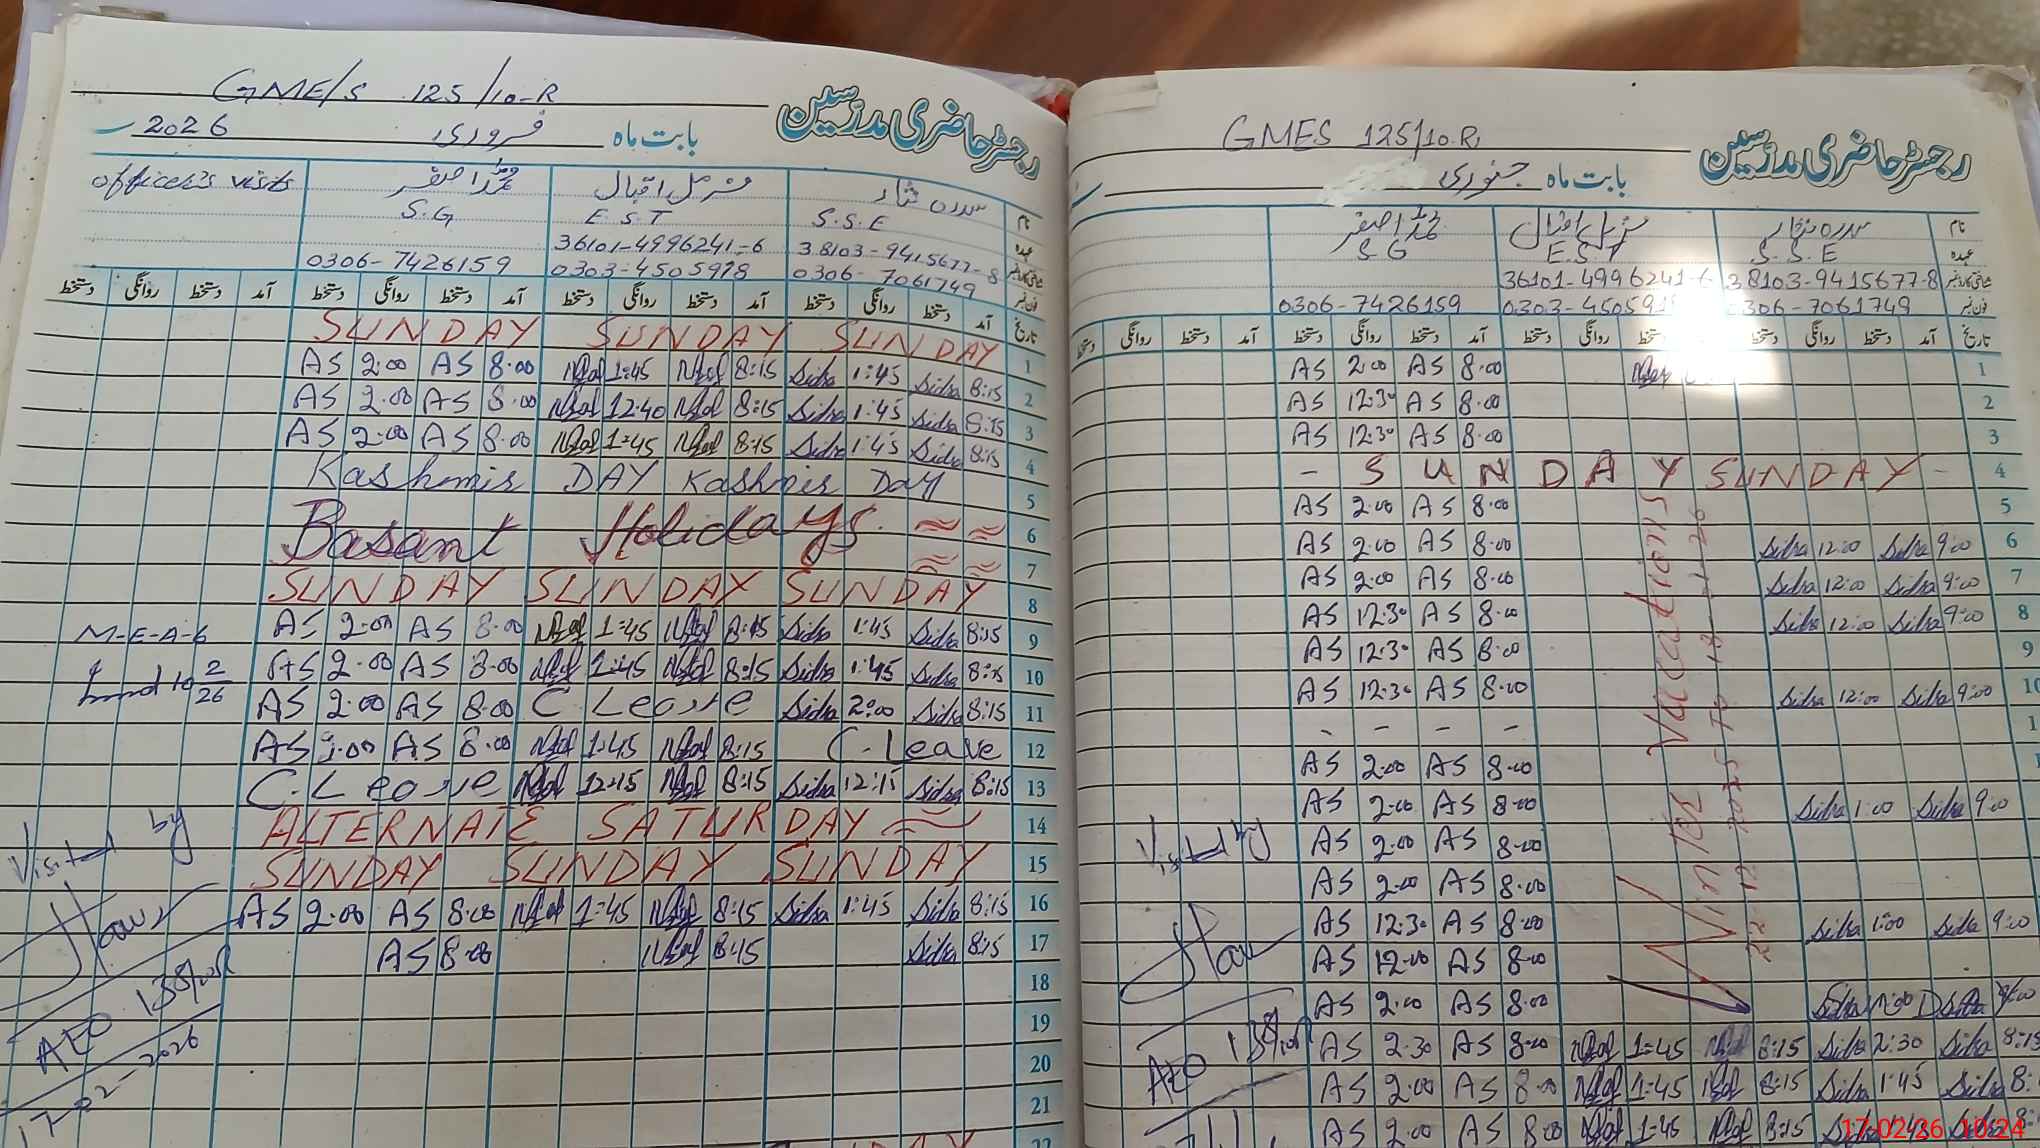 GME/S 125/10-R
رجسٹر حاضری مدرسین
بابت ماہ فروری 2026
officer's visits
محمد اصغر مزمل اقبال سدرہ نثار نام
S.G E.S.T S.S.E عہدہ
36101-4996241-6 38103-9415677-8
0306-7426159 0303-4505978 0306-7061749 فون نمبر
دستخط روانگی دستخط آمد دستخط روانگی دستخط آمد دستخط روانگی دستخط آمد دستخط روانگی دستخط آمد تاریخ
SUNDAY SUNDAY SUNDAY 1
AS 2:00 AS 8:00 1:45 8:15 Sidra 1:45 Sidra 8:15 2
AS 2:00 AS 8:00 12:40 8:15 Sidra 1:45 Sidra 8:15 3
AS 2:00 AS 8:00 1:45 8:15 Sidra 1:45 Sidra 8:15 4
Kashmir DAY Kashmir Day 5
Basant Holidays 6
7
SUNDAY SUNDAY SUNDAY 8
M-E-A-6 AS 2:00 AS 8:00 1:45 8:15 Sidra 1:45 Sidra 8:15 9
AS 2:00 AS 8:00 1:45 8:15 Sidra 1:45 Sidra 8:15 10
AS 2:00 AS 8:00 C. Leave Sidra 2:00 Sidra 8:15 11
AS AS 8:00 1:45 8:15 C. Leave 12
C. Leave 12:15 8:15 Sidra 12:15 Sidra 8:15 13
ALTERNATE SATURDAY 14
SUNDAY SUNDAY SUNDAY 15
AS 2:00 AS 8:00 1:45 8:15 Sidra 1:45 Sidra 8:15 16
AS 8:00 8:15 Sidra 8:15 17
18
19
20
21
22
Visited by
AEO 138/10R
17-02-2026
GMES 125/10.R
رجسٹر حاضری مدرسین
بابت ماہ جنوری
محمد اصغر مزمل اقبال سدرہ نثار نام
S G E.S.T S.S.E عہدہ
36101-4996241-6 38103-9415677-8
0306-7426159 0303-45059 306-7061749 فون نمبر
دستخط روانگی دستخط آمد دستخط روانگی دستخط آمد دستخط روانگی دستخط آمد تاریخ
AS 2:00 AS 8:00 1
AS 12:30 AS 8:00 2
AS 12:30 AS 8:00 3
- SUNDAY SUNDAY - 4
AS 2:00 AS 8:00 5
AS 2:00 AS 8:00 Sidra 12:00 Sidra 9:00 6
AS 2:00 AS 8:00 Sidra 12:00 Sidra 9:00 7
AS 12:30 AS 8:00 Sidra 12:00 Sidra 9:00 8
AS 12:30 AS 8:00 9
AS 12:30 AS 8:00 Sidra 12:00 Sidra 9:00 10
- - - - 1
AS 2:00 AS 8:00 1
AS 2:00 AS 8:00 Sidra 1:00 Sidra 9:00
AS 2:00 AS 8:00
AS 2:00 AS 8:00
AS 12:30 AS 8:00 Sidra 1:00 Sidra 9:00
AS 12:00 AS 8:00
AS 2:00 AS 8:00
AS 2:30 AS 8:00 1:45 8:15 Sidra 2:30 Sidra 8:15
AS 2:00 AS 8:00 1:45 8:15 Sidra 1:45 Sidra 8:
AS 2:00 AS 8:00 1:45 8:15
Winter Vacations
22-12-2025 To 18-1-26
Visited by
AEO 138/10R
17.02.26 10:24